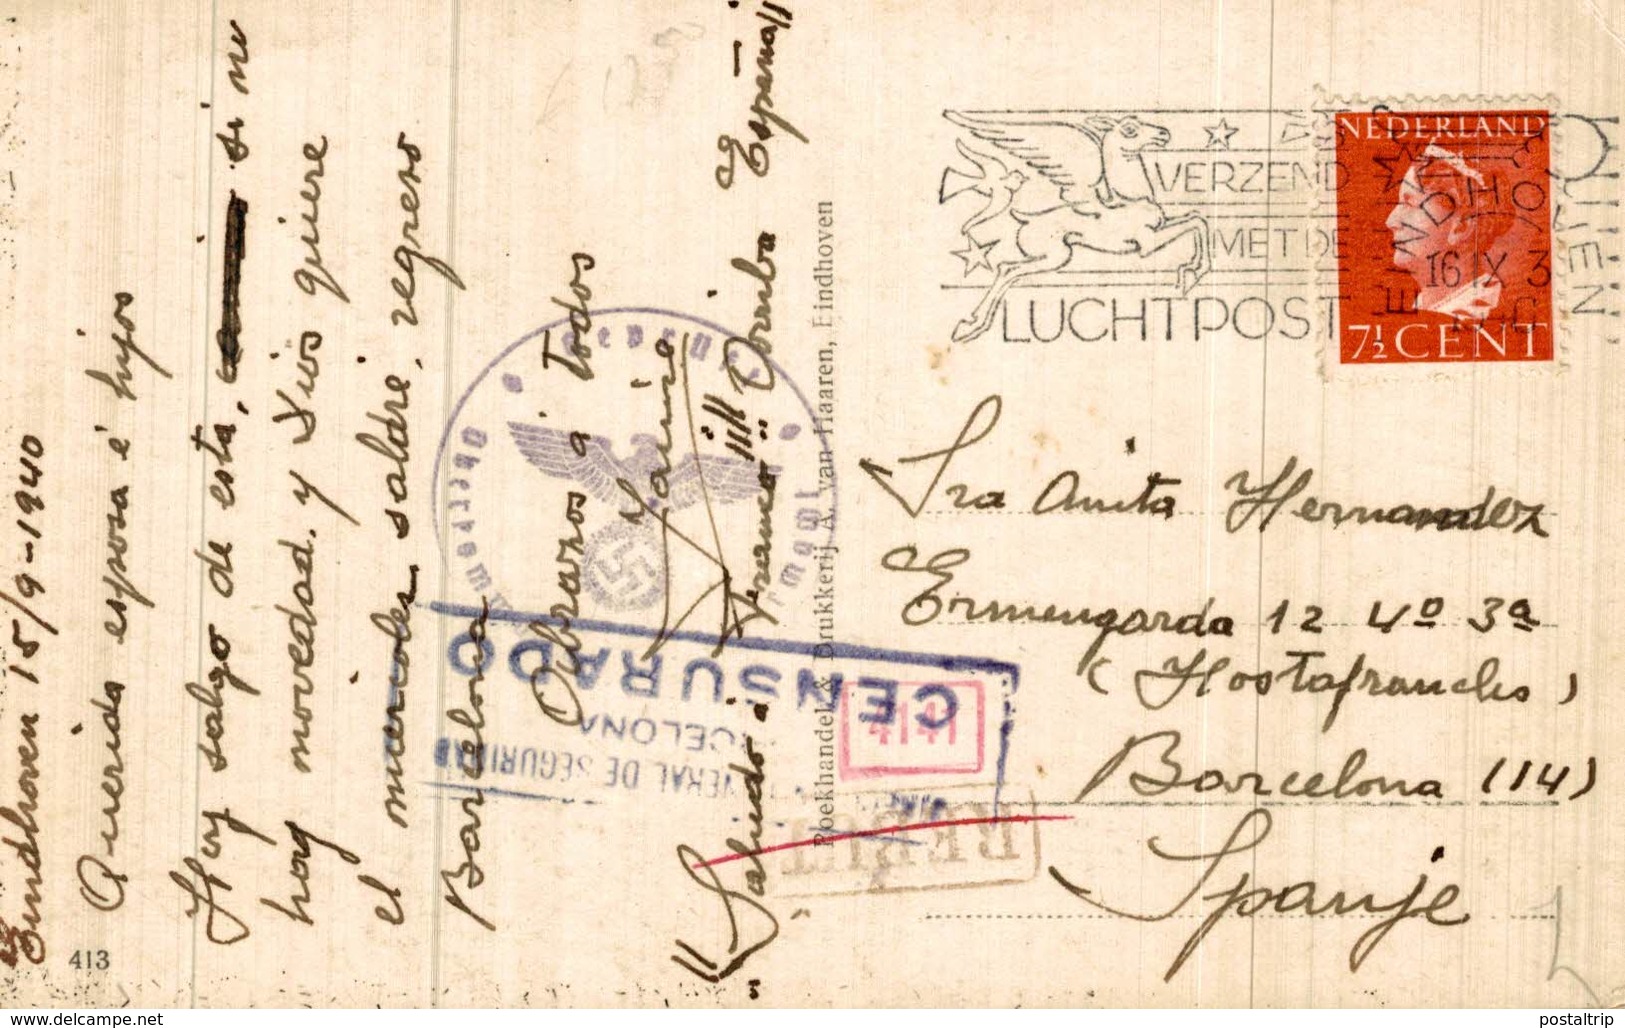 Eindhoven 15/9-1940
Querida esposa é hijos
Hoy salgo de esta, si no
hay novedad. y Dios quiere
el miercoles saldré, regreso
Barcelona
Abrazos a Todos
Jaime
"Saludo á Franco!! ¡¡¡Arriba España!!
413
Boekhandel & Drukkerij A. van Haaren, Eindhoven
VERZEND
MET DE
LUCHTPOST
EINDHOVEN
16 IX 3
1940
NEDERLAND
7½ CENT
Sra Anita Hernandez
Ermengarda 12 4º 3ª
(Hostafranchs)
Barcelona (14)
Spanje
Oberkommando
CENSURADO
BARCELONA
GENERAL DE SEGURIDAD
4141
DELCAMPE.NET
postaltrip